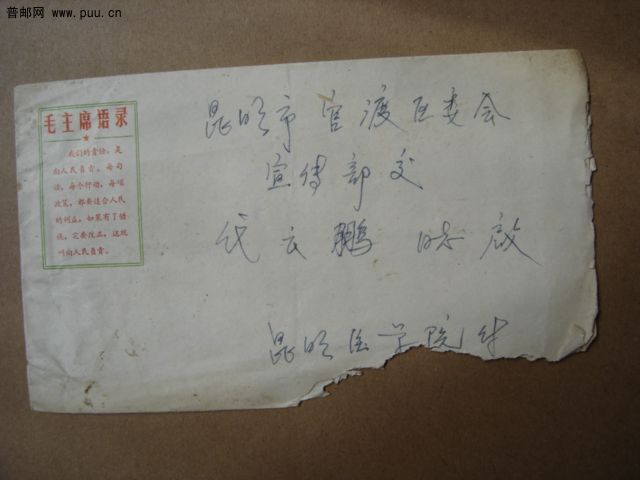 普邮网 www.puu.cn
毛主席语录
我们的责任，是
向人民负责。每句
话，每个行动，每项
政策，都要适合人民
的利益，如果有了错
误，定要改正，这就
叫向人民负责。
昆明市官渡区委会
宣传部交
代云鹏 启
昆明医学院